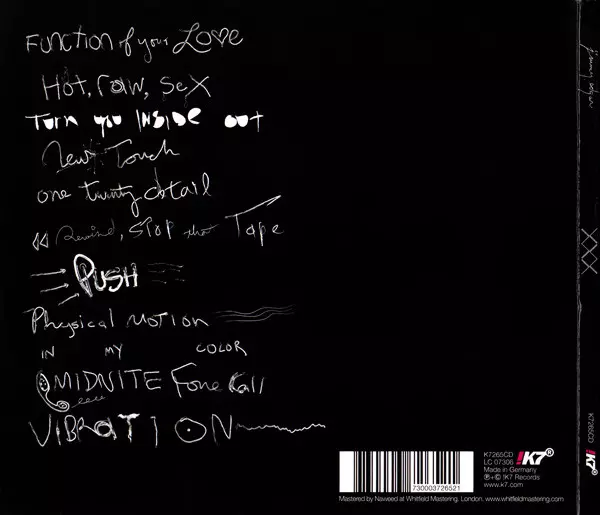 Function of your Love
Hot, raw, sex
Turn you inside out
New Touch
one tiny detail
Rewind, Stop that Tape
PUSH
Physical MOTION
IN MY COLOR
MIDNITE Fone Call
VIBRATION
730003726521
K7265CD
LC 07306
Made in Germany
℗+© !K7 Records
www.k7.com
!K7®
Mastered by Naweed at Whitfield Mastering, London. www.whitfieldmastering.com
XXX
K7265CD
!K7®